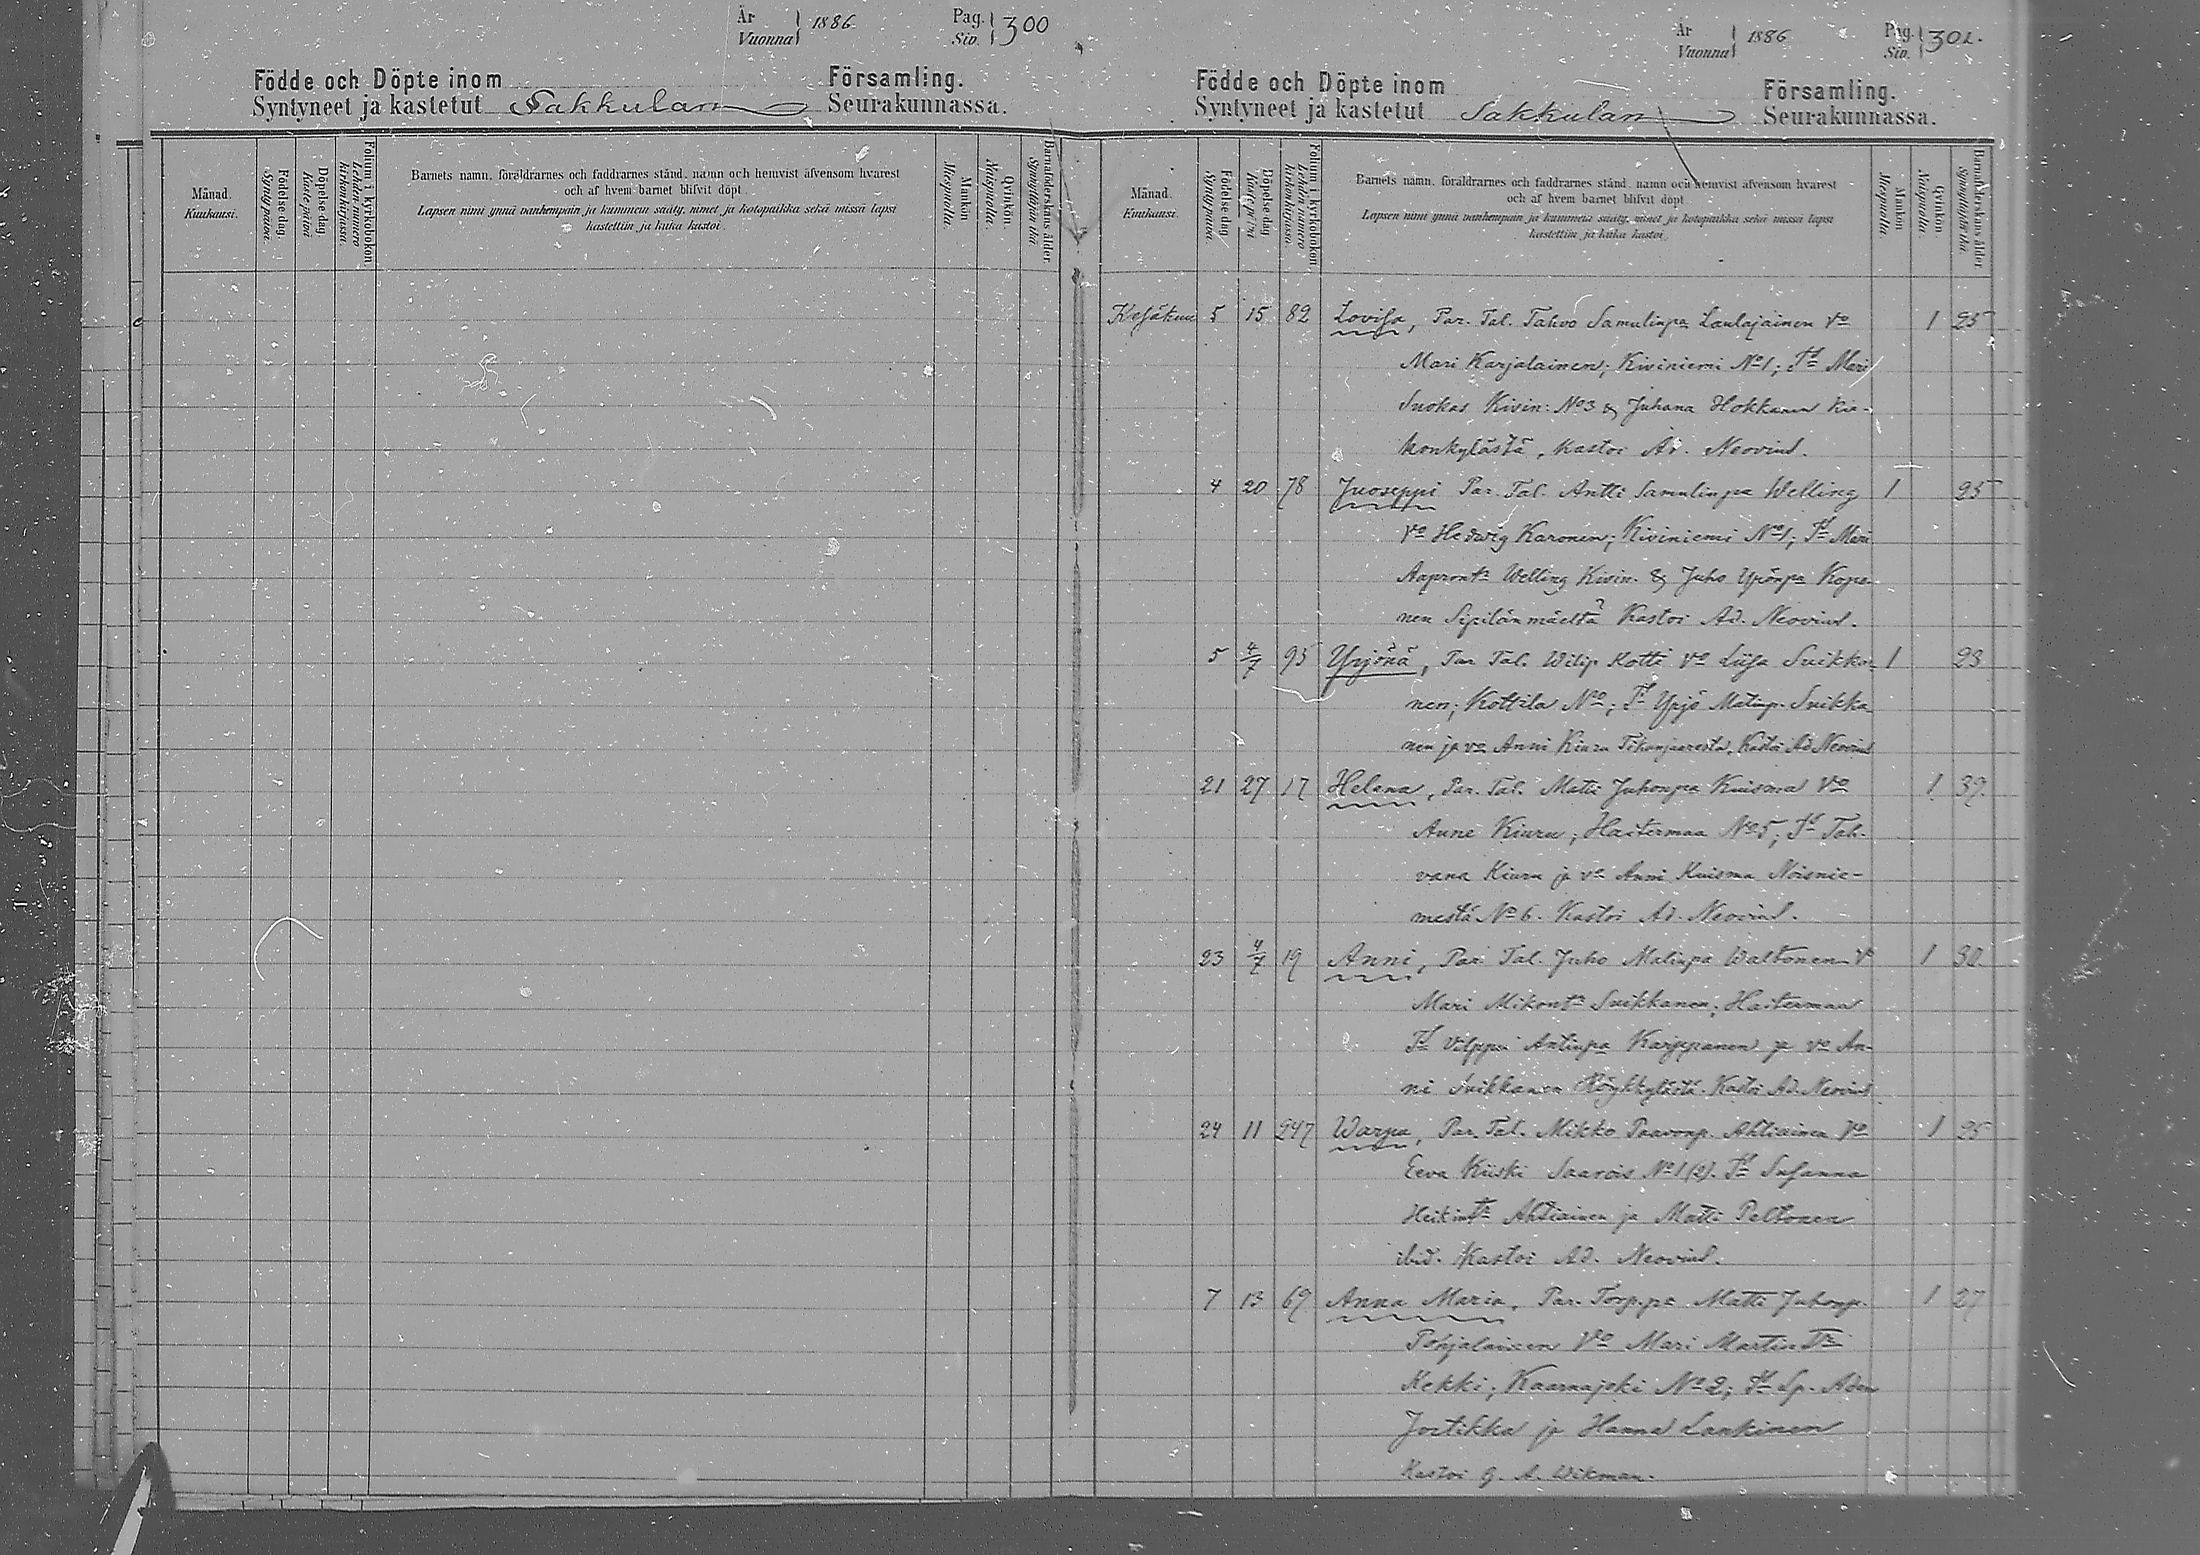 År
Vuonna 1886.
Pag.
Siv. 300
Födde och Döpte inom
Syntyneet ja kastetut Sakkulan
Församling.
Seurakunnassa.
Månad.
Kuukausi.
Födelse dag.
Syntypäivä.
Döpelse dag.
Kaste päivä
Folium i kyrkoboken
Lehden numero
kirkonkirjassa.
Barnets namn, föräldrarnes och faddrarnes stånd, namn och hemvist äfvensom hvarest
och af hvem barnet blifvit döpt.
Lapsen nimi ynnä vanhempain ja kummein sääty, nimet ja kotopaikka sekä missä lapsi
kastettiin ja kuka kastoi.
Mankön
Miespuolia.
Qvinkön.
Naispuolia.
Barnaföderskans ålder.
Synnyttäjän ikä.
År
Vuonna 1886
Pag.
Siv. 301.
Födde och Döpte inom
Syntyneet ja kastetut Sakkulan
Församling.
Seurakunnassa.
Månad.
Kuukausi.
Födelse dag.
Syntypäivä.
Döpelse dag
Kaste päivä
Folium i kyrkoboken
Lehden numero
kirkonkirjassa.
Barnets namn, föräldrarnes och faddrarnes stånd, namn och hemvist äfvensom hvarest
och af hvem barnet blifvit döpt
Lapsen nimi ynnä vanhempain ja kummein sääty, nimet ja kotopaikka sekä missä lapsi
kastettiin ja kuka kastoi
Mankön
Miespuolia.
Qvinkön
Naispuolia.
Barnaföderskans ålder
Synnyttäjän ikä.
Kesäkuu 5 15 82 Lovisa, Par. Tal. Tahvo Samulinpa Laulajainen Vo 1 25
Mari Karjalainen; Kiviniemi No 1; Td Mari
Suokas Kivin: No 3 & Juhana Hokkanen Kir-
konkylästä, Kastoi Ad. Neovius.
4 20 78 Juoseppi Par. Tal. Antti Samulinpa Welling 1 25
Vo Hedwig Karonen; Kiviniemi No 1; Td Mari
Aapront: Welling Kivin. & Juho Yrönpa Kopo-
nen Sipilänmäeltä Kastoi Ad. Neovius.
5 4/7 95 Yrjönä, Par Tal. Wilip Kotti Vo Liisa Suikka- 1 23
nen; Kottila No; Td Yrjö Matinp. Suikka
nen ja vo Anni Kiuru Kastoi Ad Neovius
21 27 17 Helena, Par. Tal. Matti Juhonpa Kuisma Vo 1 39
Anne Kiuru; Haitermaa No 5; Td Tah-
vana Kiuru ja vo Anni Kuisma Noisnie-
mestä No 6. Kastoi Ad. Neovius.
23 4/7 19 Anni, Par. Tal. Juho Matinpa Waltonen V 1 30.
Mari Mikont: Suikkanen; Haitermaa
Td Vilppu Antinpa Karppanen ja vo An-
ni Suikkanen Röykkylästä. Kastoi Ad. Neovius
24 11 247 Warpa, Par. Tal. Mikko Paavonp. Ahtiainen Vo 1 25
Eeva Kiiski Saarois No 1 (2). Td Susanna
Heikint: Ahtiainen ja Matti Peltonen
ibid. Kastoi Ad. Neovius.
7 13 69 Anna Maria, Par. Torppa Matti Juhonp. 1 27
Pohjalainen Vo Mari Martint:
Kekki; Kaarnajoki No 2; Td Sp. Adam
Jortikka ja Hanna Lankinen
Kastoi G. A. Wikman.